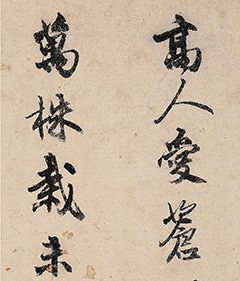 高人愛蒼
萬株栽未